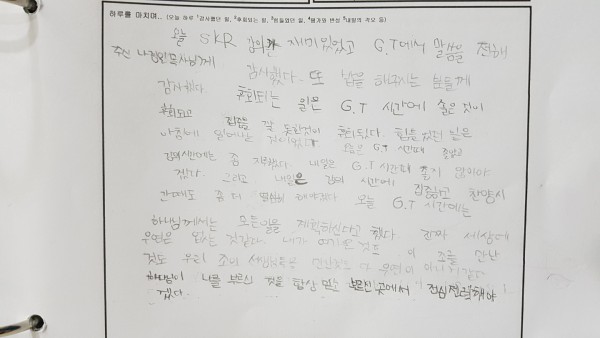 하루를 마치며.. (오늘 하루 ¹감사했던 일, ²후회되는 일, ³힘들었던 일, ⁴평가와 반성 ⁵내일의 각오 등)
오늘 SKR 강의가 재미있었고 G.T에서 말씀을 전해
주신 목사님께 감사했다. 또 밥을 해주시는 분들께
감사했다. 후회되는 일은 G.T 시간에 졸은 것이
후회되고 집중을 잘 못한것이 후회된다. 힘들었던 일은
아침에 일어나는 것이었다. 오늘은 G.T 시간때 졸았고
강의시간에는 좀 지루했다. 내일은 G.T 시간때 졸지 않아야
겠다. 그리고 내일은 강의 시간에 집중하고 찬양시
간에도 좀 더 열심히 해야겠다. 오늘 G.T 시간에는
하나님께서는 모든일을 계획하신다고 했다. 진짜 세상에
우연은 없는 것같다. 내가 여기온것도 이 조를 만난
것도 우리 조의 사람들을 만난것도 다 우연이 아닌것같다.
하나님이 나를 부르신 것을 항상 믿고 부르신 곳에서 전심전력해야
겠다.